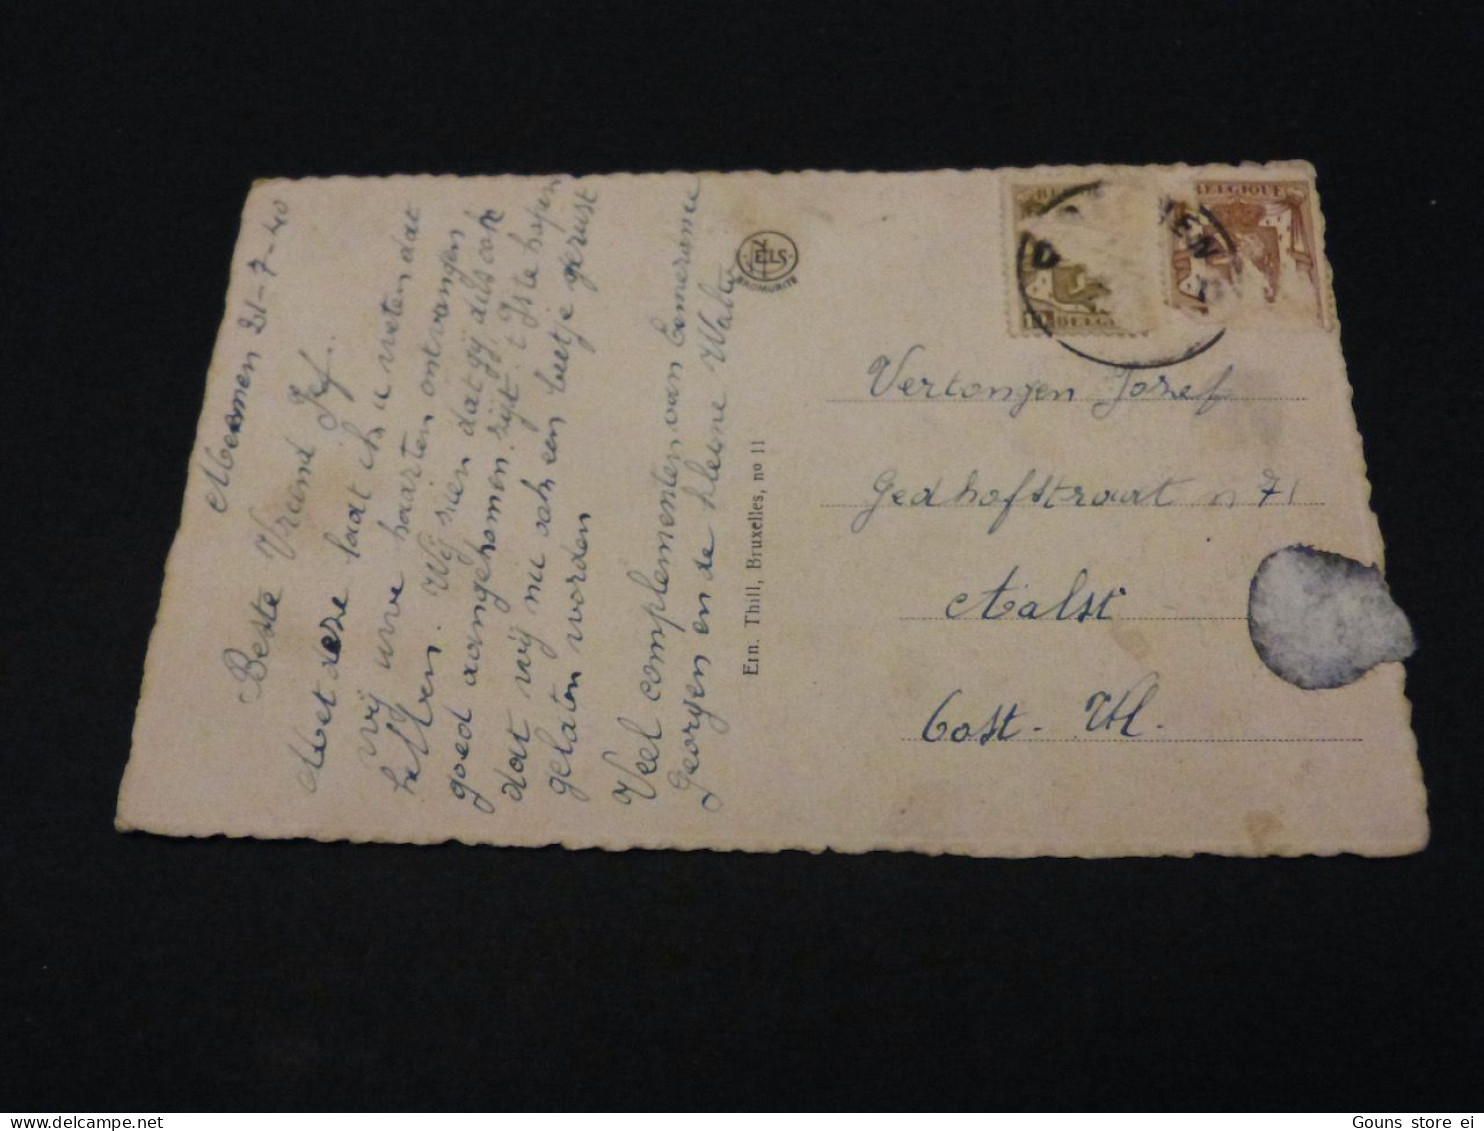 Meenen 21-7-40
Beste Vriend Jef.
Met deze laat ik u weten dat
wij uwe kaarten ontvangen
hebben. Wij zien dat gij dels ook
goed aangekomen zijt. t Is te hopen
dat wij nu ook een beetje gerust
gelaten worden
Veel complementen van Emerance
Georgen en de kleine Walter
NELS
BROMURITE
Ern. Thill, Bruxelles, no 11
BELGIQUE
BELGIE
BELGIQUE
Verlongen Jozef
Gedhofstraat n 71
Aalst
Oost-Vl.
Gouns store ei